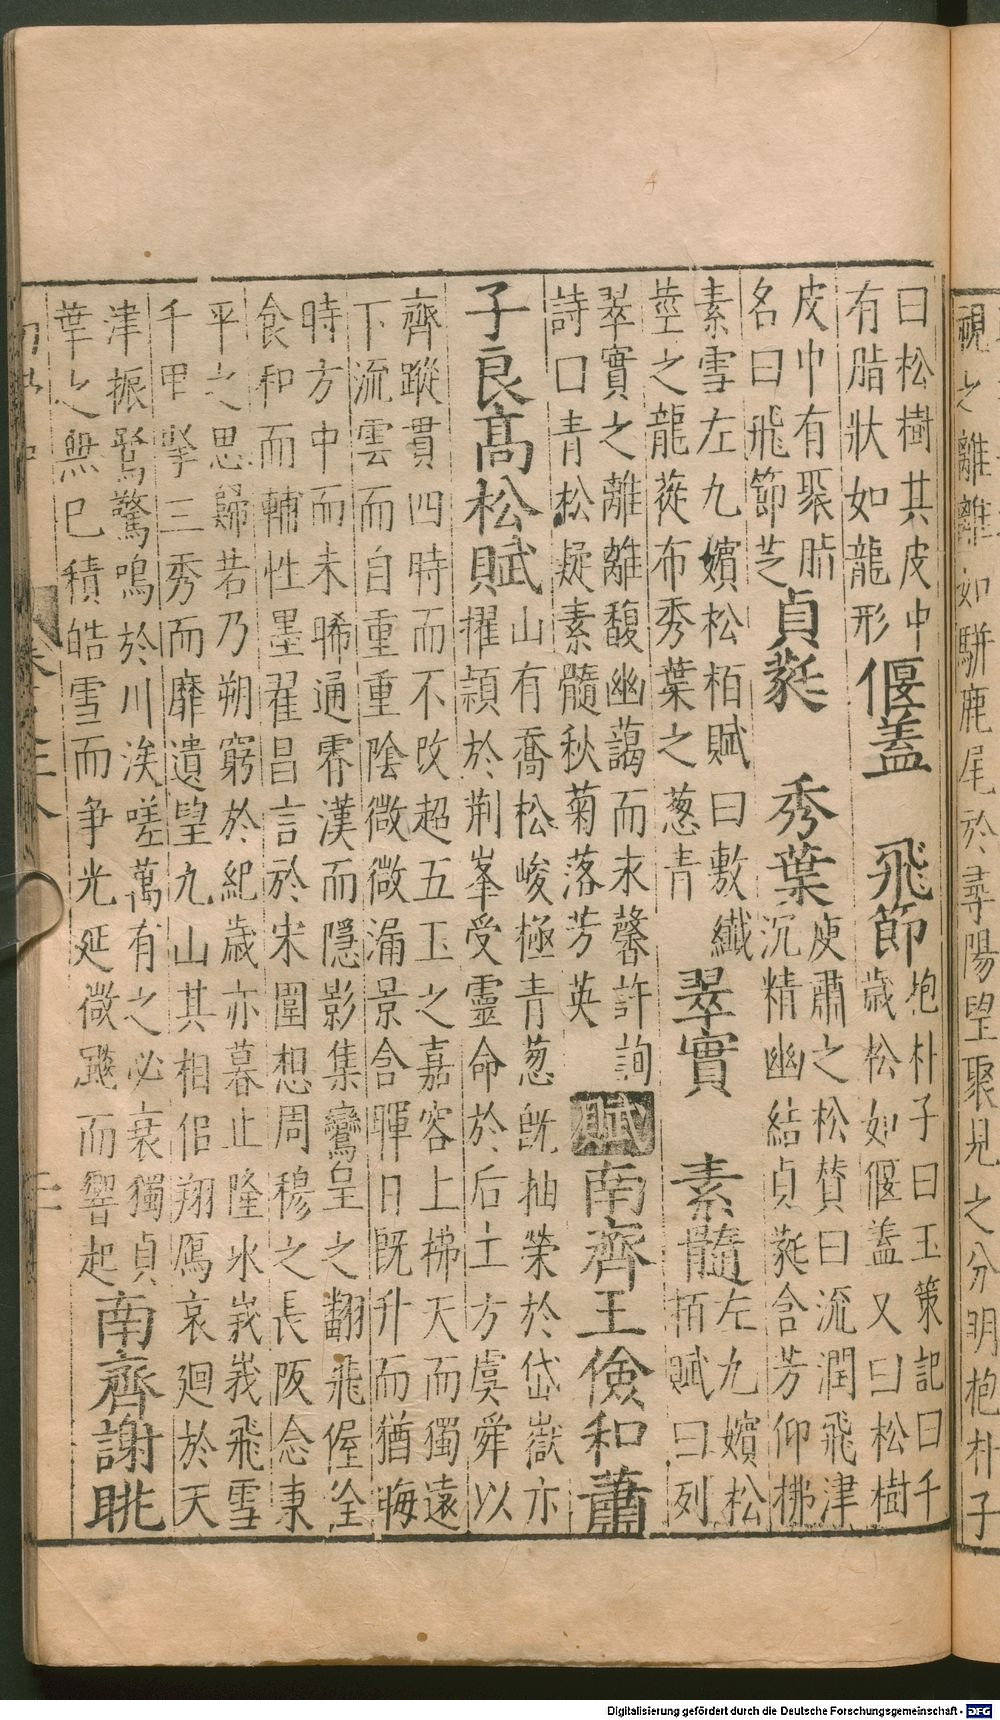 視之離離如駢鹿尾於尋陽望聚見之分明抱朴子
曰松樹其皮中
有脂狀如龍形
偃蓋 飛節
抱朴子曰玉策記曰千
歲松如偃蓋又曰松樹
皮巾有聚脂
名曰飛節芝
貞蕤 秀葉
庾肅之松賛曰流潤飛津
沉精幽結貞蕤含芳仰拂
素雪左九嬪松栢賦曰敷纖
莖之龍蓯布秀葉之葱青
翠實 素髓
左九嬪松
栢賦曰列
翠實之離離馥幽藹而永馨許詢
詩曰青松疑素髓秋菊落芳英
賦 南齊王儉和蕭
子良高松賦
山有喬松峻極青葱旣抽榮於岱嶽亦
擢穎於荆峯受靈命於后土方虞舜以
齊蹤貫四時而不改超五玉之嘉容上拂天而獨遠
下流雲而自重重陰微微漏景含暉日既升而猶晦
時方中而未晞通霽漢而隱影集鸞皇之翻飛偓佺
食和而輔性墨翟昌言於宋圍想周穆之長阪念東
平之思歸若乃朔窮於紀歲亦暮止隆氷峩峩飛雪
千甲挐三秀而靡遺望九山其相佀翔鴈哀廻於天
津振鷺驚鳴於川涘嗟萬有之必衰獨貞
華之無已積皓雪而争光延微飈而響起
南齊謝眺
Digitalisierung gefördert durch die Deutsche Forschungsgemeinschaft - DFG